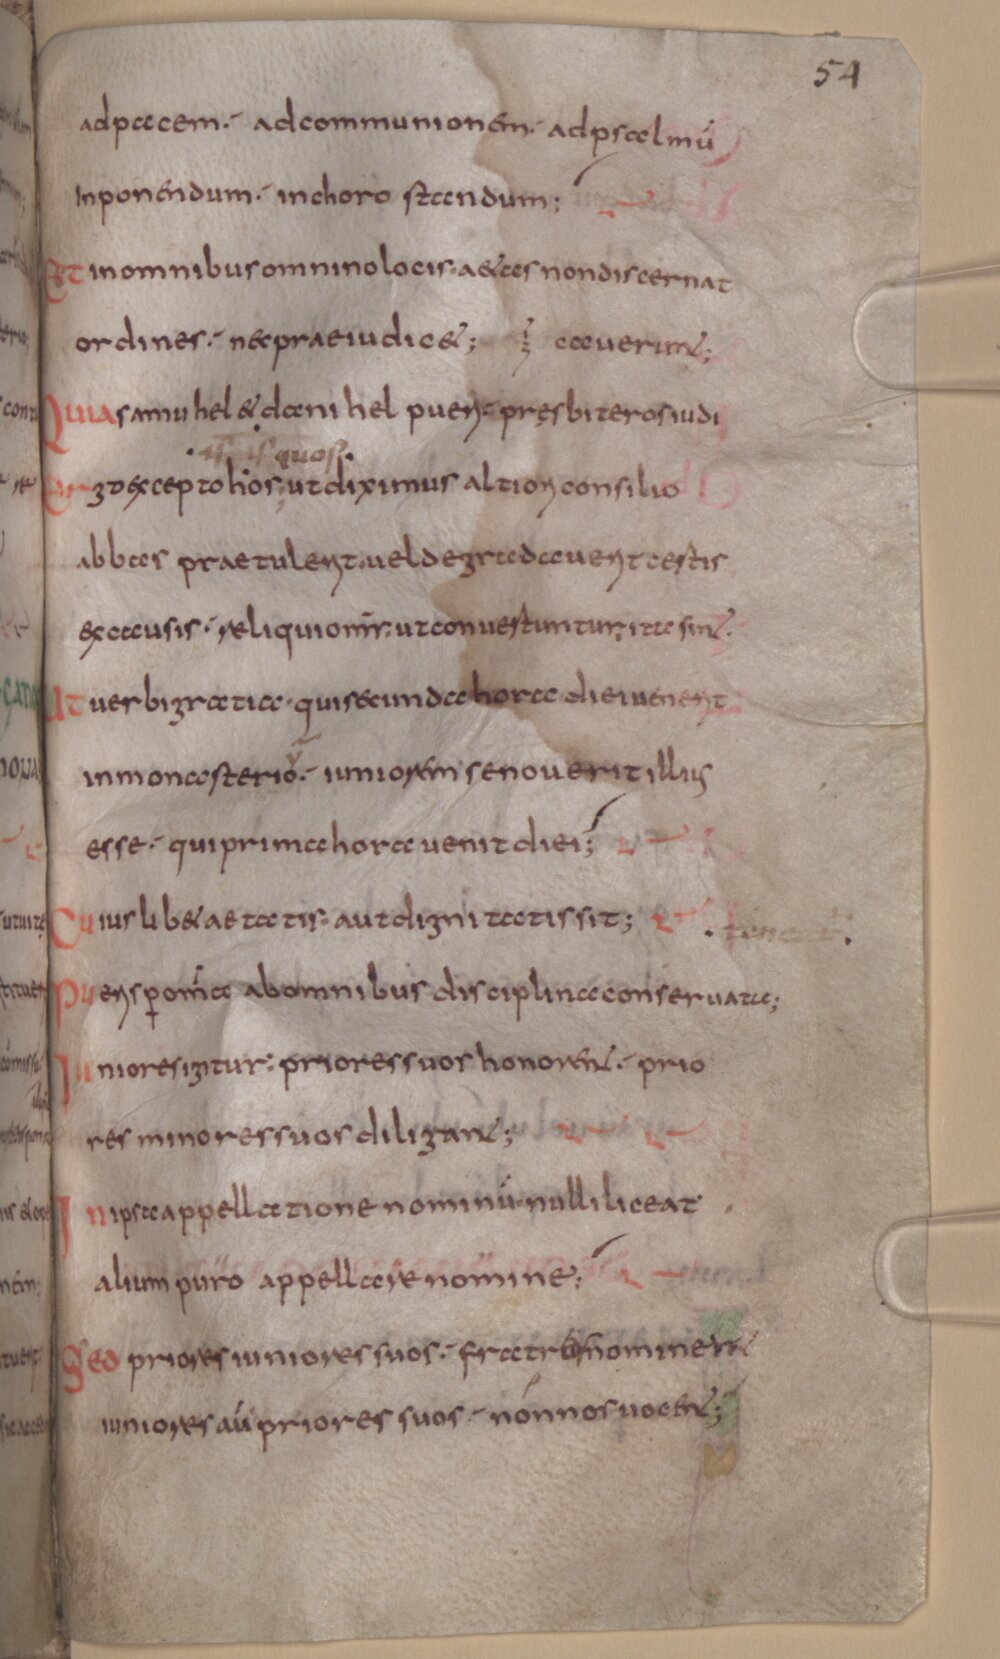 54
adpacem· adcommunionem· adpsalmū
Inponendum· inchoro standum;
Et inomnibus omnino locis· aetas non discernat
ordines· nec praeiudicet; caverint;
Quia samuhel et danihel pueri presbiteros iudi
quos
ergo excepto hos ut diximus altiori consilio
abbas praetulerit· vel degradaverit certis
ex causis· reliqui omnes ut convertuntur· ita sint·
Ut verbi gratia· qui secunda hora diei venerit
in monasterio· iuniorem se noverit illius
esse· qui prima hora venit diei;
Cuiuslibet aetatis· aut dignitatis sit;
Pueris p omīa ab omnibus disciplina conservata;
Iuniores igitur· priores suos honorent· prio
res minores suos diligant;
In ipsa appellatione nominū· nulli liceat
alium puro appellare nomine;
Sed priores iuniores suos· fratres nominent
iuniores aū priores suos· nonnos vocent;